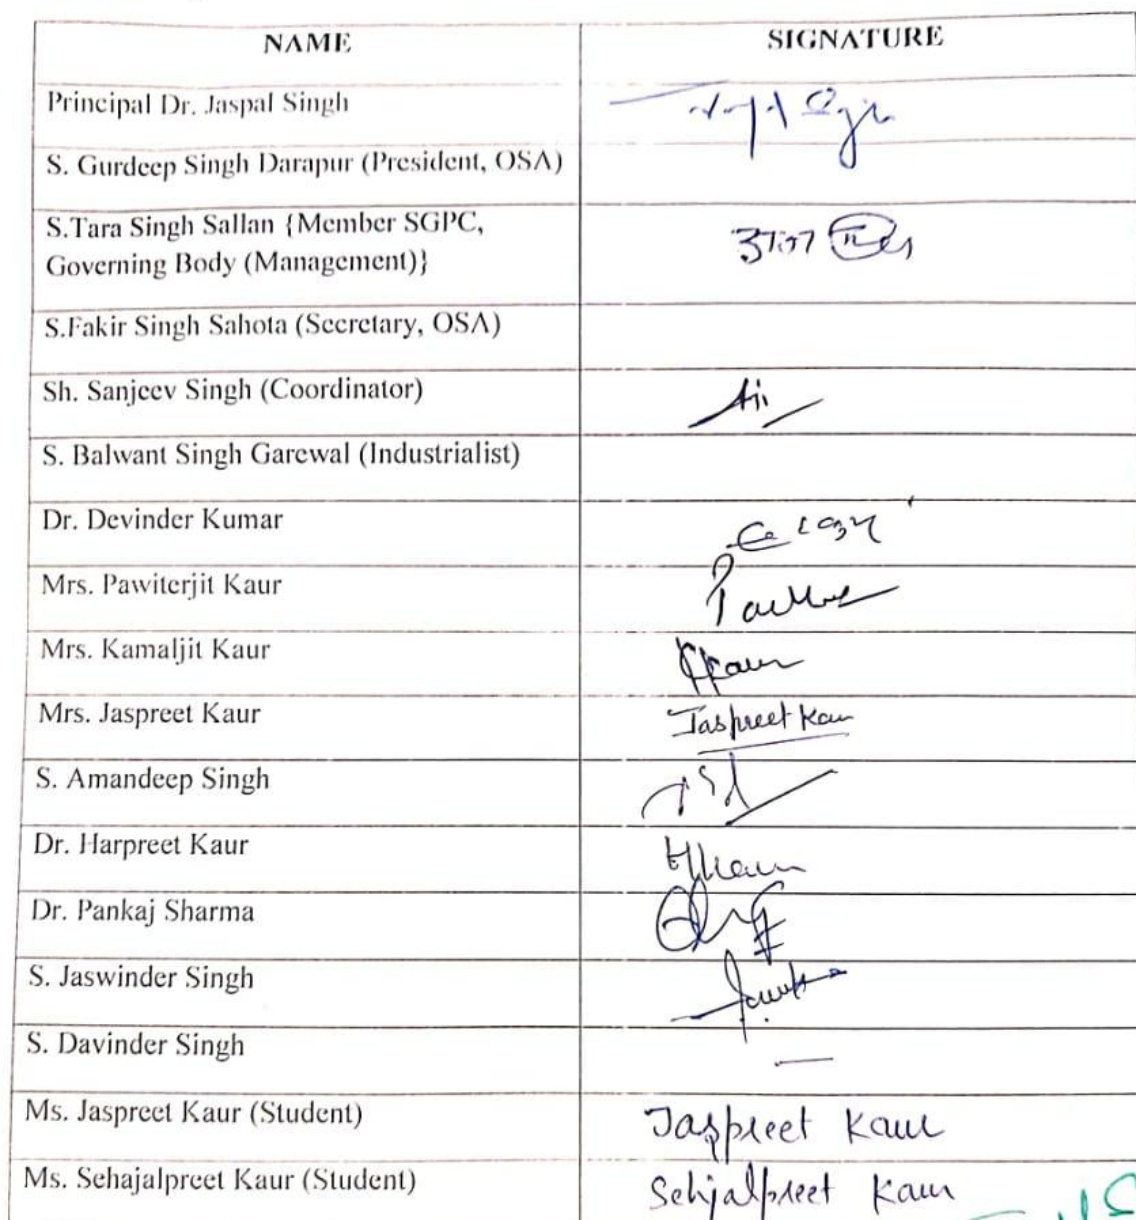 NAME SIGNATURE
Principal Dr. Jaspal Singh
S. Gurdeep Singh Darapur (President, OSA)
S.Tara Singh Sallan {Member SGPC,
Governing Body (Management)}
S.Fakir Singh Sahota (Secretary, OSA)
Sh. Sanjeev Singh (Coordinator)
S. Balwant Singh Garewal (Industrialist)
Dr. Devinder Kumar
Mrs. Pawiterjit Kaur
Mrs. Kamaljit Kaur KKaur
Mrs. Jaspreet Kaur Jaspreet Kaur
S. Amandeep Singh
Dr. Harpreet Kaur HKaur
Dr. Pankaj Sharma
S. Jaswinder Singh
S. Davinder Singh —
Ms. Jaspreet Kaur (Student) Jaspreet Kaur
Ms. Sehajalpreet Kaur (Student) Sehjalpreet Kaur